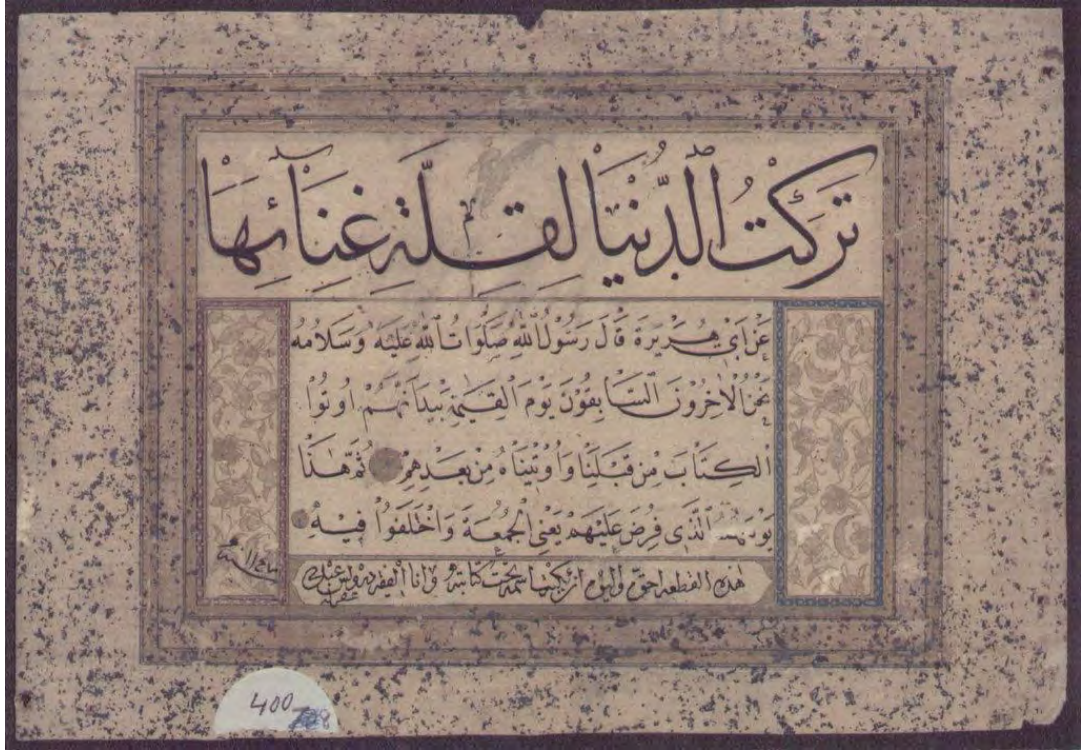 تَرَكْتُ الدُّنْيَا لِقِلَّةِ غِنَآئِهَا
عَنْ اَبِي هُرَيْرَةَ قَالَ رَسُوْلُ اللّٰهِ صَلَوَاتُ اللّٰهِ عَلَيْهِ وَسَلَامُهُ
نَحْنُ الْاٰخِرُوْنَ السَّابِقُوْنَ يَوْمَ الْقِيٰمَةِ بَيْدَ اَنَّهُمْ اُوتُوْا
الْكِتَابَ مِنْ قَبْلِنَا وَاُوْتِيْنَاهُ مِنْ بَعْدِهِمْ ثُمَّ هٰذَا
يَوْمُهُمُ الَّذِى فُرِضَ عَلَيْهِمْ يَعْنِى الْجُمُعَةَ وَاخْتَلَفُوْا فِيْهِ
هذه القطعه احق كاتبه وانا الفقير
400